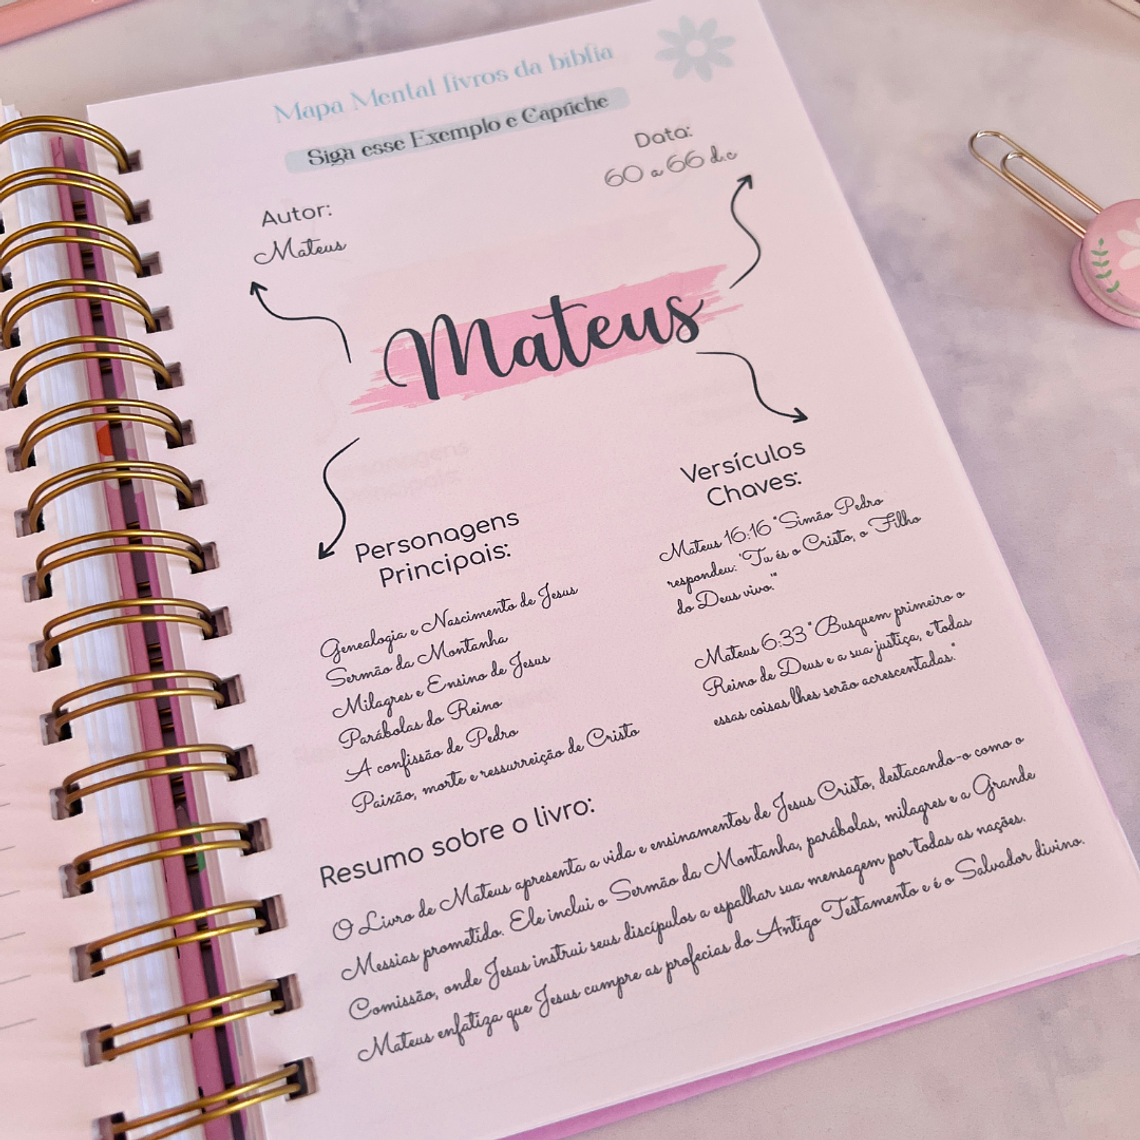 Mapa Mental livros da bíblia
Siga esse Exemplo e Capriche
Data:
60 a 66 d.c
Autor:
Mateus
Mateus
Versículos
Chaves:
Mateus 16:16 "Simão Pedro
respondeu: 'Tu és o Cristo, o Filho
do Deus vivo.'"
Mateus 6:33 "Busquem primeiro o
Reino de Deus e a sua justiça, e todas
essas coisas lhes serão acrescentadas."
Personagens
Principais:
Genealogia e Nascimento de Jesus
Sermão da Montanha
Milagres e Ensino de Jesus
Parábolas do Reino
A confissão de Pedro
Paixão, morte e ressurreição de Cristo
Resumo sobre o livro:
O Livro de Mateus apresenta a vida e ensinamentos de Jesus Cristo, destacando-o como o
Messias prometido. Ele inclui o Sermão da Montanha, parábolas, milagres e a Grande
Comissão, onde Jesus instrui seus discípulos a espalhar sua mensagem por todas as nações.
Mateus enfatiza que Jesus cumpre as profecias do Antigo Testamento e é o Salvador divino.